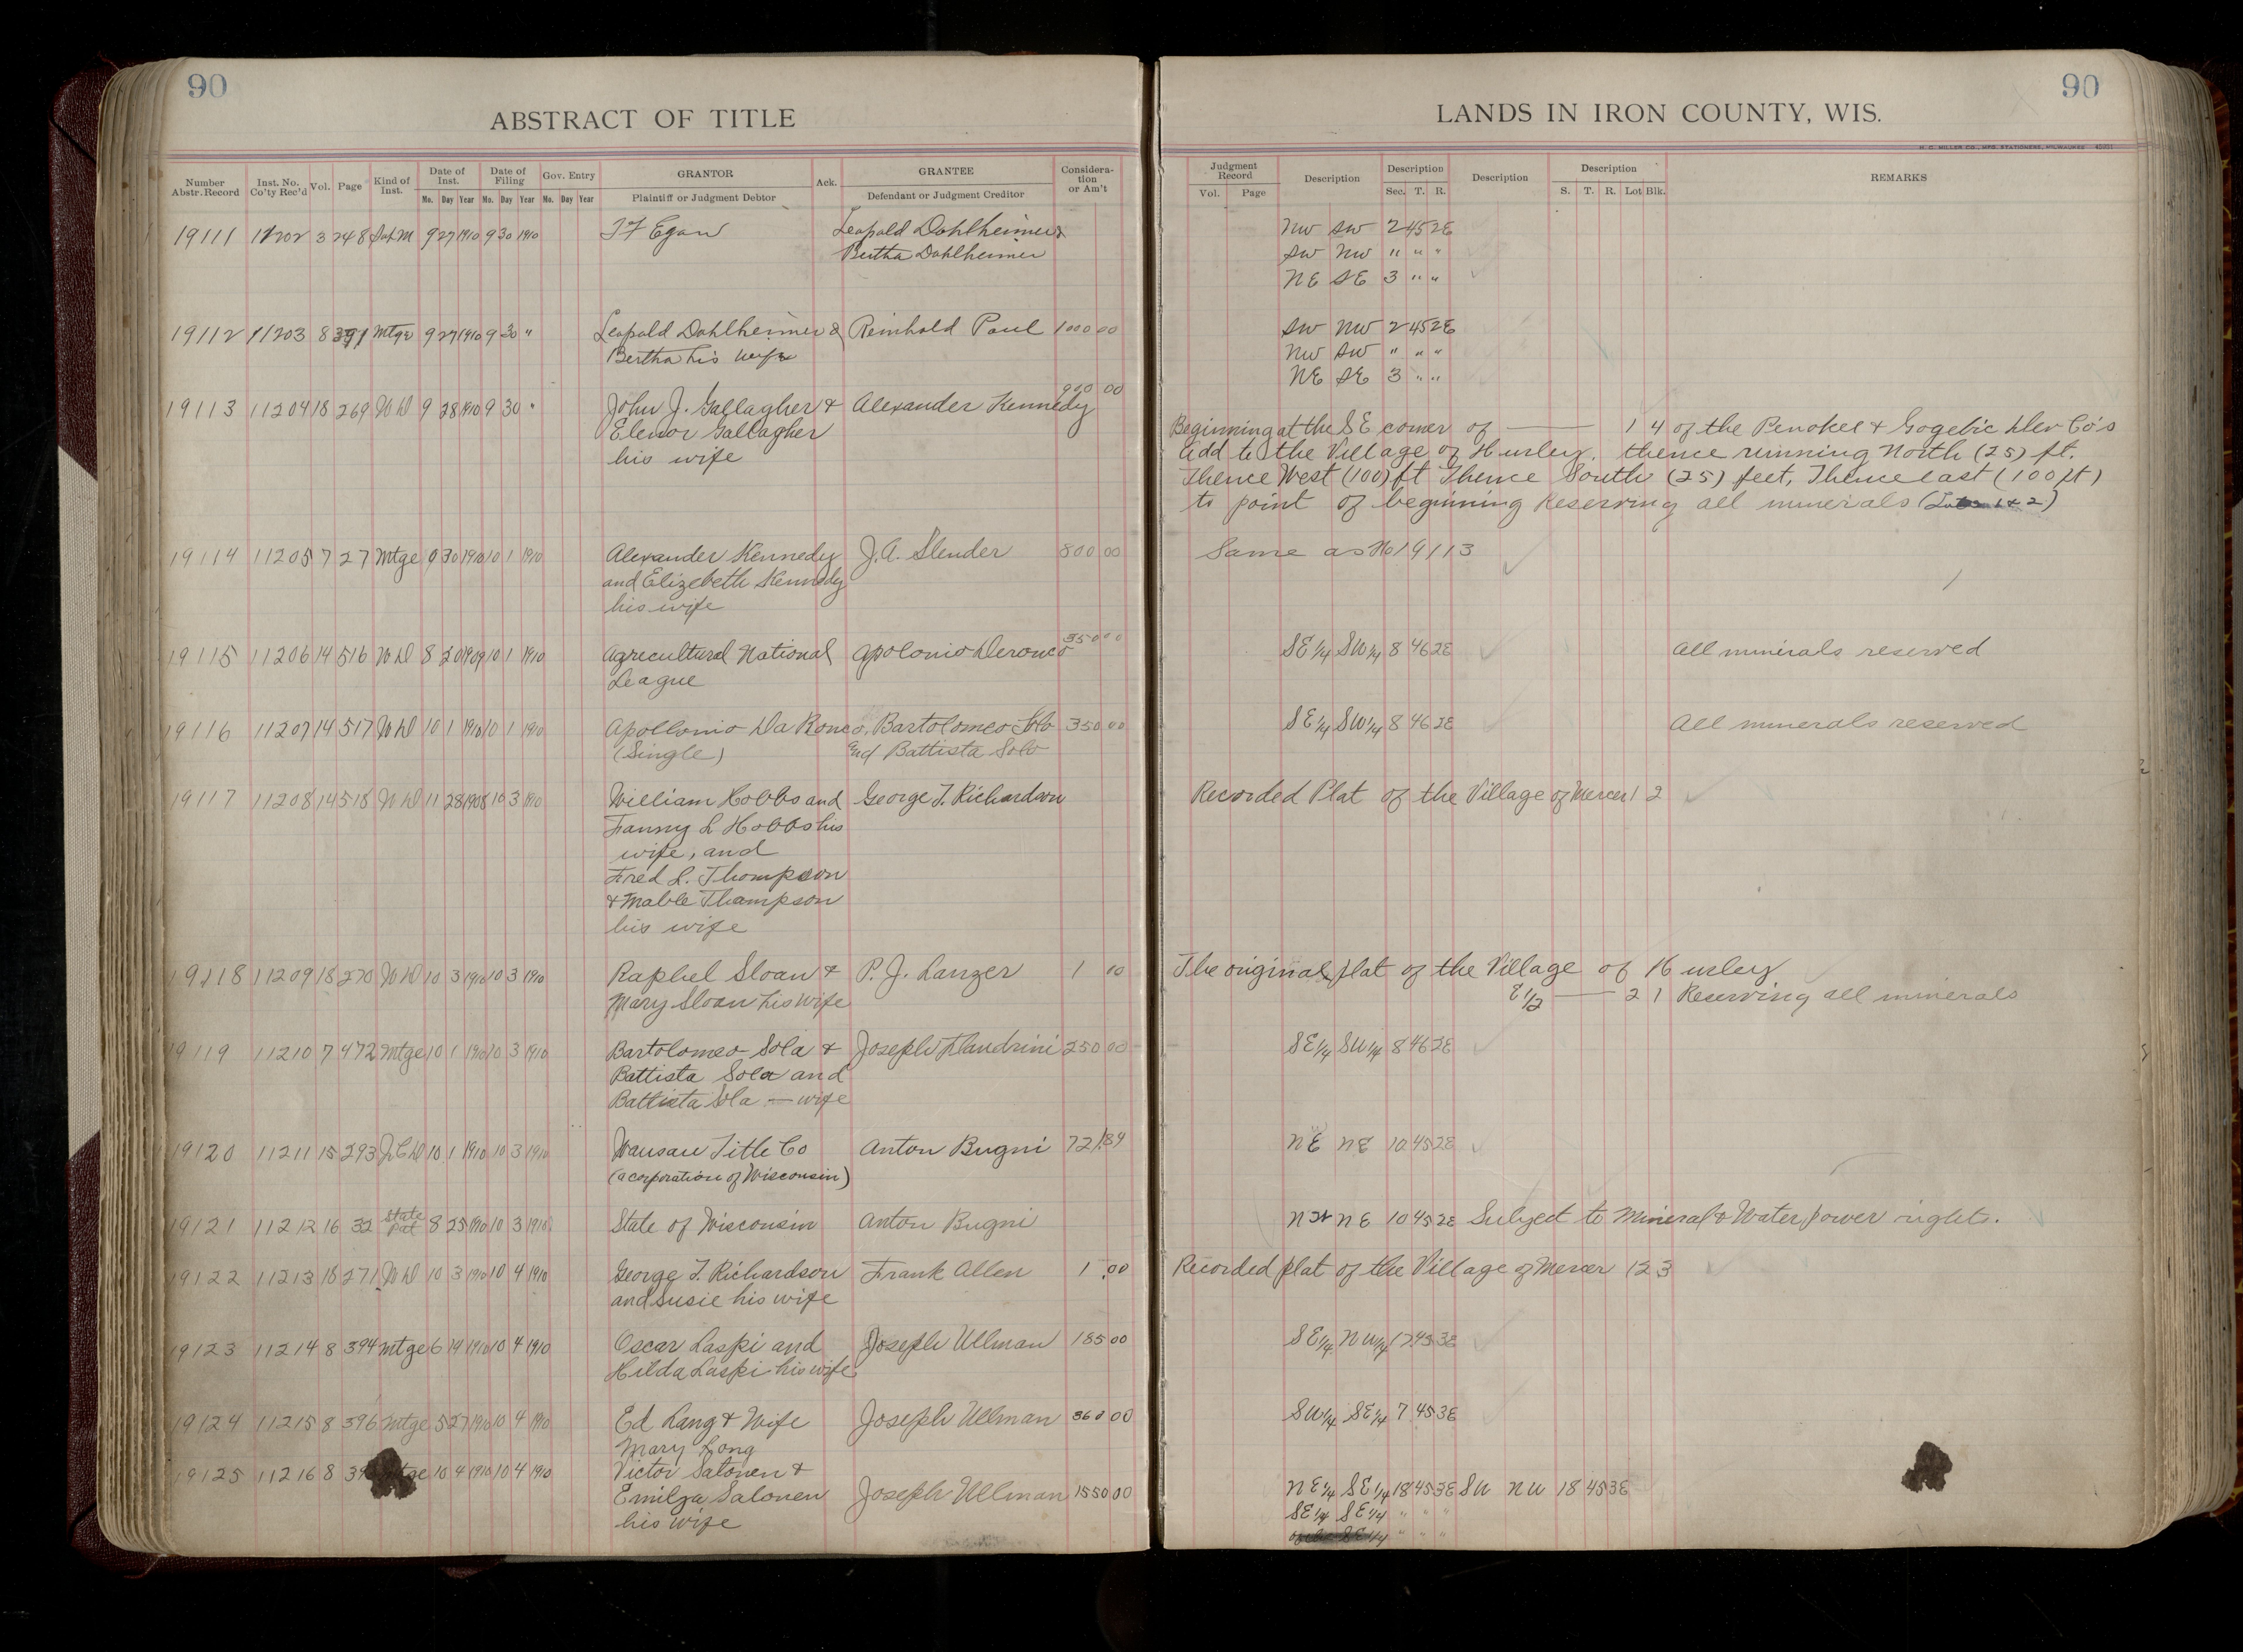 90
ABSTRACT OF TITLE
Number Abstr. Record
Inst. No. Co'ty Rec'd
Vol.
Page
Kind of Inst.
Date of Inst.
Mo. Day Year
Date of Filing
Mo. Day Year
Gov. Entry
Mo. Day Year
GRANTOR
Plaintiff or Judgment Debtor
Ack.
GRANTEE
Defendant or Judgment Creditor
Considera-tion or Am't
19111 11202 3 248 Sat M 9 27 1910 9 30 1910 T F Egan Leopold Dahlheimer &
Bertha Dahlheimer
19112 11203 8 391 Mtge 9 27 1910 9 30 " Leopold Dahlheimer & Reinhold Paul 1000 00
Bertha his wife
19113 11204 18 269 W D 9 28 1910 9 30 " John J. Gallagher & Alexander Kennedy 900 00
Elenor Gallagher
his wife
19114 11205 7 27 Mtge 9 30 1910 10 1 1910 Alexander Kennedy J. A. Slender 800 00
and Elizebeth Kennedy
his wife
19115 11206 14 516 W D 8 20 1909 10 1 1910 Agricultural National Apolonio Deronco 350 00
League
19116 11207 14 517 W D 10 1 1910 10 1 1910 Apollonio Da Ronco, Bartolomeo Solo 350 00
(Single) and Battista Solo
19117 11208 14 518 W D 11 28 1908 10 3 1910 William Hobbs and George T. Richardson
Fanny L Hobbs his
wife, and
Fred L. Thompson
& Mable Thompson
his wife
19118 11209 18 270 W D 10 3 1910 10 3 1910 Raphel Sloan & P. J. Lanzer 1 00
Mary Sloan his wife
19119 11210 7 472 Mtge 10 1 1910 10 3 1910 Bartolomeo Sola & Joseph Flandrini 250 00
Battista Sola and
Battista Sola — wife
19120 11211 15 293 Q C D 10 1 1910 10 3 1910 Wausau Title Co Anton Bugni 72 84
(a corporation of Wisconsin)
19121 11212 16 32 State Pat 8 25 1910 10 3 1910 State of Wisconsin Anton Bugni
19122 11213 18 271 W D 10 3 1910 10 4 1910 George T. Richardson Frank Allen 1 00
and Susie his wife
19123 11214 8 394 Mtge 6 14 1910 10 4 1910 Oscar Laspi and Joseph Ullman 185 00
Hilda Laspi his wife
19124 11215 8 396 Mtge 5 27 1910 10 4 1910 Ed Lang & Wife Joseph Ullman 360 00
Mary Long
19125 11216 8 Mtge 10 4 1910 10 4 1910 Victor Salonen &
Emilza Salonen Joseph Ullman 1550 00
his wife
90
LANDS IN IRON COUNTY, WIS.
H. C. MILLER CO., MFG. STATIONERS, MILWAUKEE
Judgment Record
Vol. Page
Description
Description
Sec. T. R.
Description
Description
S. T. R. Lot Blk.
REMARKS
NW SW 2 45 2E
SW NW " " "
NE SE 3 " "
SW NW 2 45 2E
NW SW " " "
NE SE 3 " "
Beginning at the SE corner of —— 1 4 of the Penokee & Gogebic Dev Co's
Add to the Village of Hurley. thence running North (25) ft.
Thence West (100) ft Thence South (25) feet, Thence east (100 ft)
to point of beginning Reserving all minerals
Same as No 19113
SE¼ SW¼ 8 46 2E All minerals reserved
SE¼ SW¼ 8 46 2E All minerals reserved
Recorded Plat of the Village of Mercer 1 2
The original plat of the Village of Hurley
E½ —— 2 1 Reserving all minerals
SE¼ SW¼ 8 46 2E
NE NE 10 45 2E
NW NE 10 45 2E Subject to Mineral & Water power rights.
Recorded plat of the Village of Mercer 12 3
SE¼ NW¼ 17 45 3E
SW¼ SE¼ 7 45 3E
NE¼ SE¼ 18 45 3E SW NW 18 45 3E
SE¼ SE¼ " " "